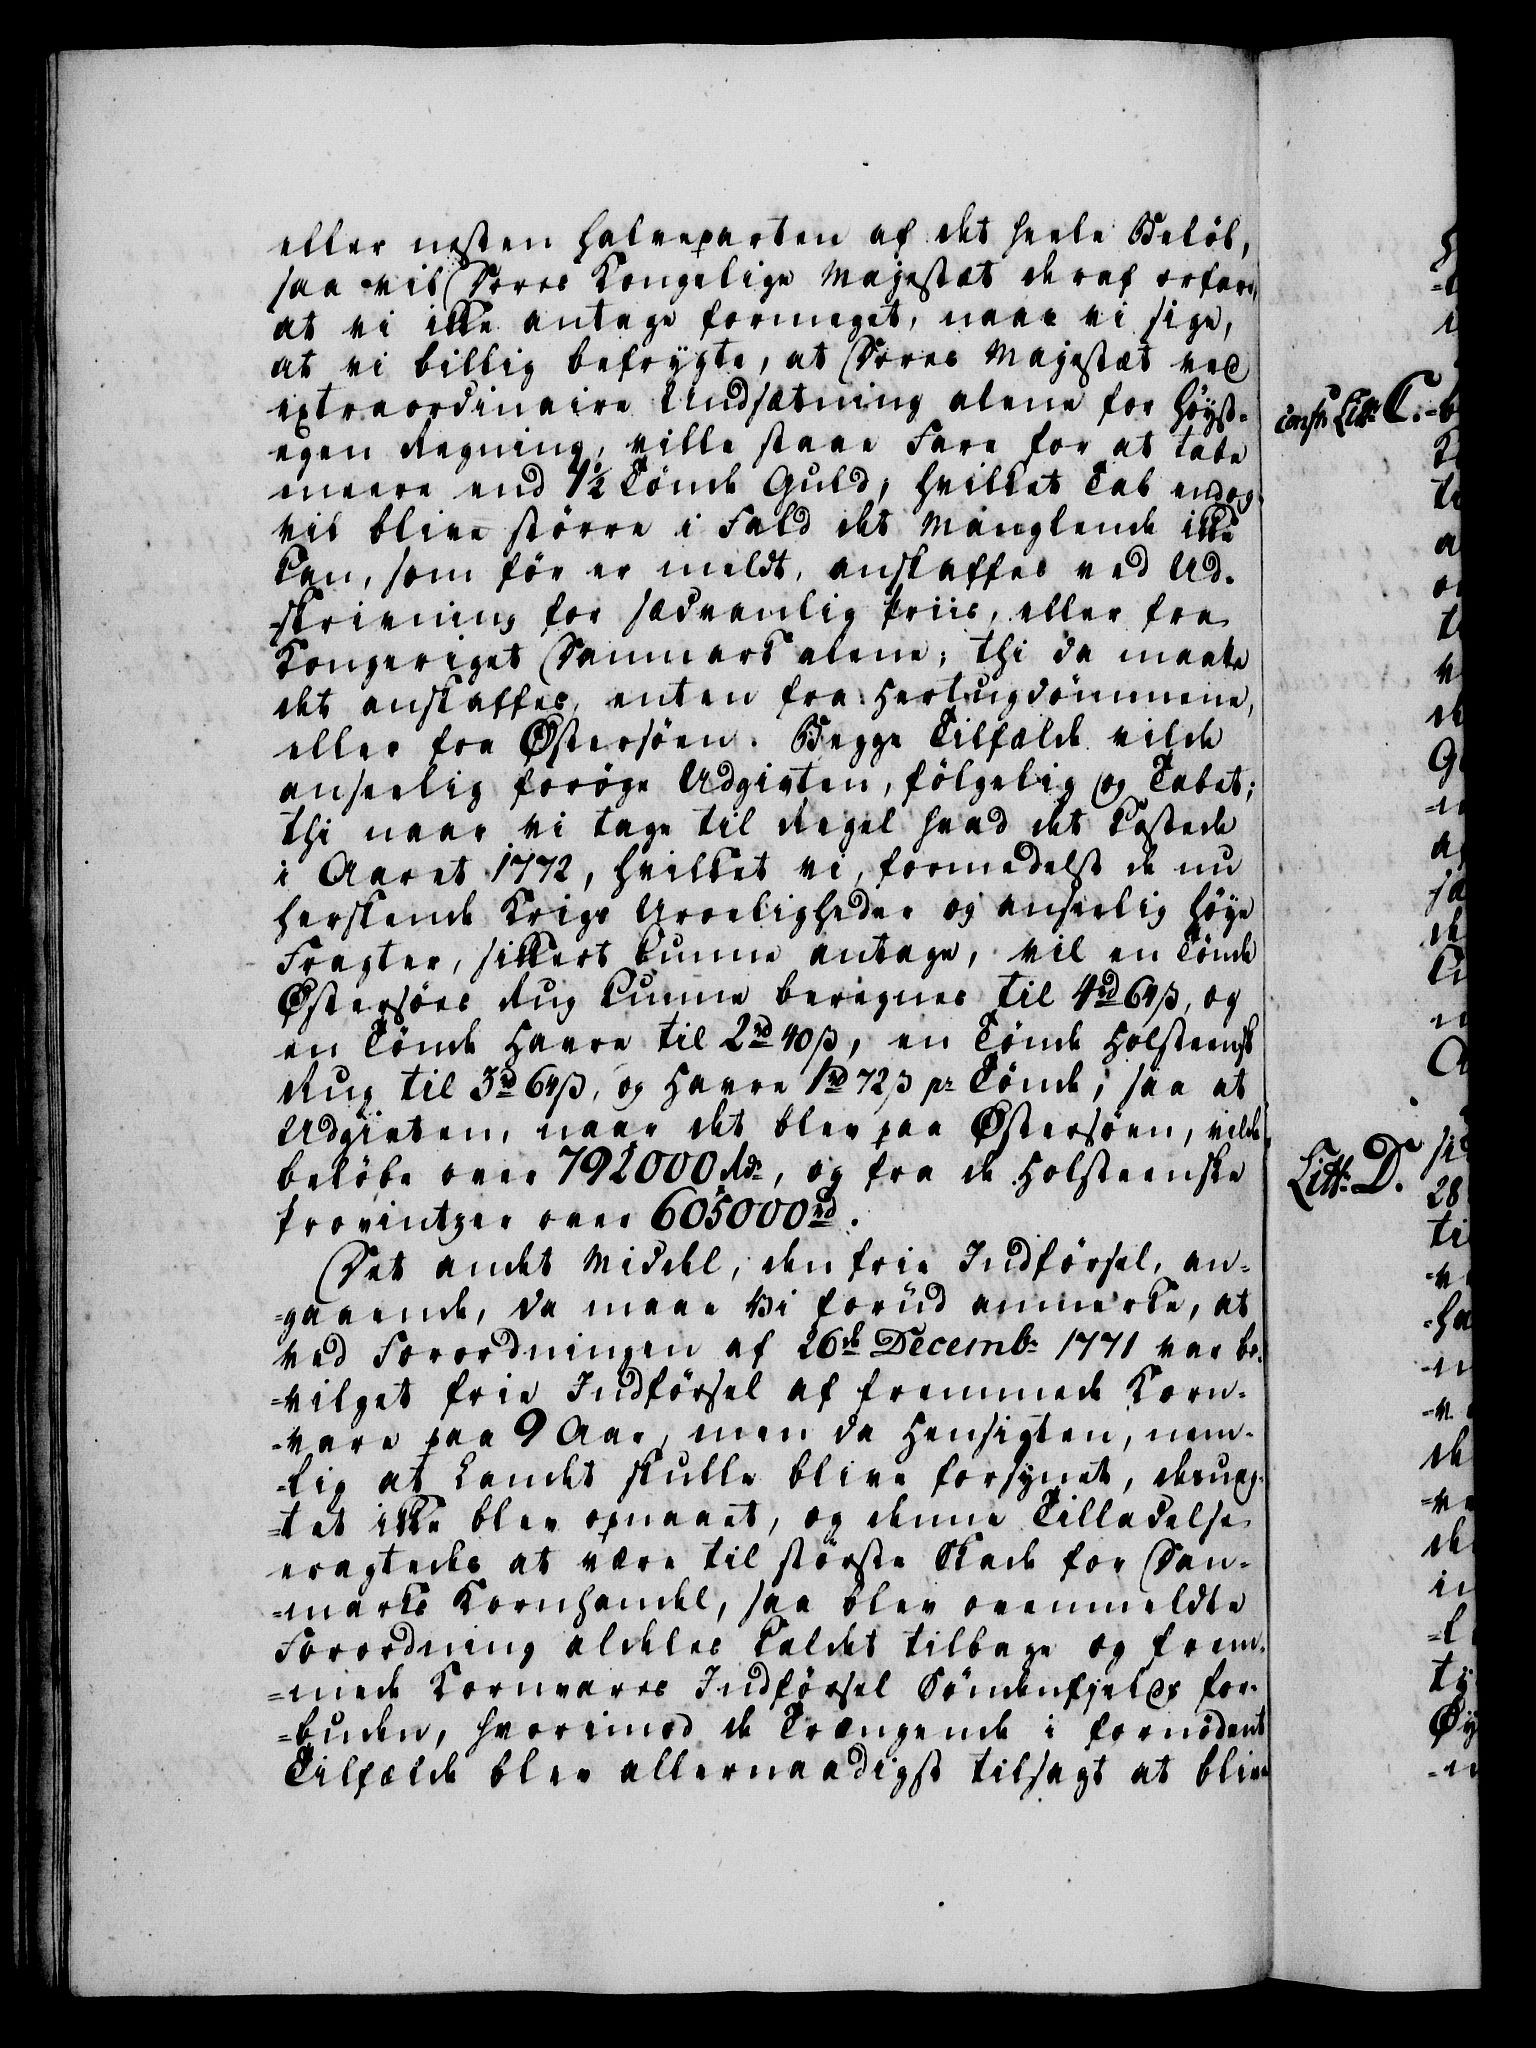 eller næsten halveparten af det heele Beløb,
saa vil Deres Kongelige Majestæt deraf erfare,
at vi ikke antage formeget, naar vi sige,
at vi billig befrygte, at Deres Majestæt ved
extraordinaire Undsætning alene for Höyst-
egen Regning, ville staae Fare for at tabe
meere end 1½ Tönde Guld, hvilket Tab endog
vil blive större i Fald det Manglende ikke
kan, som för er meldt, anskaffes ved Ud-
-skrivning for sædvanlig Priis, eller fra
Kongeriget Danmark alene; thi da maatte
det anskaffes, enten fra Hertugdömmene,
eller fra Østersöen. Begge Tilfælde vilde
anseelig foröge Udgivten, fölgelig og Tabet;
thi naar vi tage til Regel hvad det kostede
i Aaret 1772, hvilket vi, formedelst de nu
herskende Krigs Uroeligheder og anseelig höye
Fragter, sikkert kunne antage, vil en Tönde
Østersöes Rug kunne beregnes til 4rd 64ß, og
en Tönde Havre til 2rd 40ß, en Tönde Holsteensk
Rug til 3rd 64ß, og Havre 1rd 72ß pr Tönde; saa at
Udgivten, naar det blev paa Østersöen, vilde
belöbe over 792000 Rdr, og fra de Holsteenske
Provintzer over 605000rd.
Det andet Middel, den frie Indförsel, an-
-gaaende, da maae Vi forud anmerke, at
ved Forordningen af 26de Decembr 1771 var be-
-vilget frie Indförsel af fremmede Korn-
-vare paa 9 Aar, men da Hensigten, nem-
-lig at Landet skulle blive forsynet, desuag-
-tet ikke blev opnaaet, og denne Tilladelse
eragtedes at være til störste Skade for Dan-
-marks Kornhandel, saa blev ovenmeldte
Forordning aldeles kaldet tilbage og frem-
-mede Kornvares Indförsel Söndenfjelds for-
-buden, hvorimod de Trængende i fornödent
Tilfælde blev allernaadigst tilsagt at blive
Litr C.
Littr D.
28